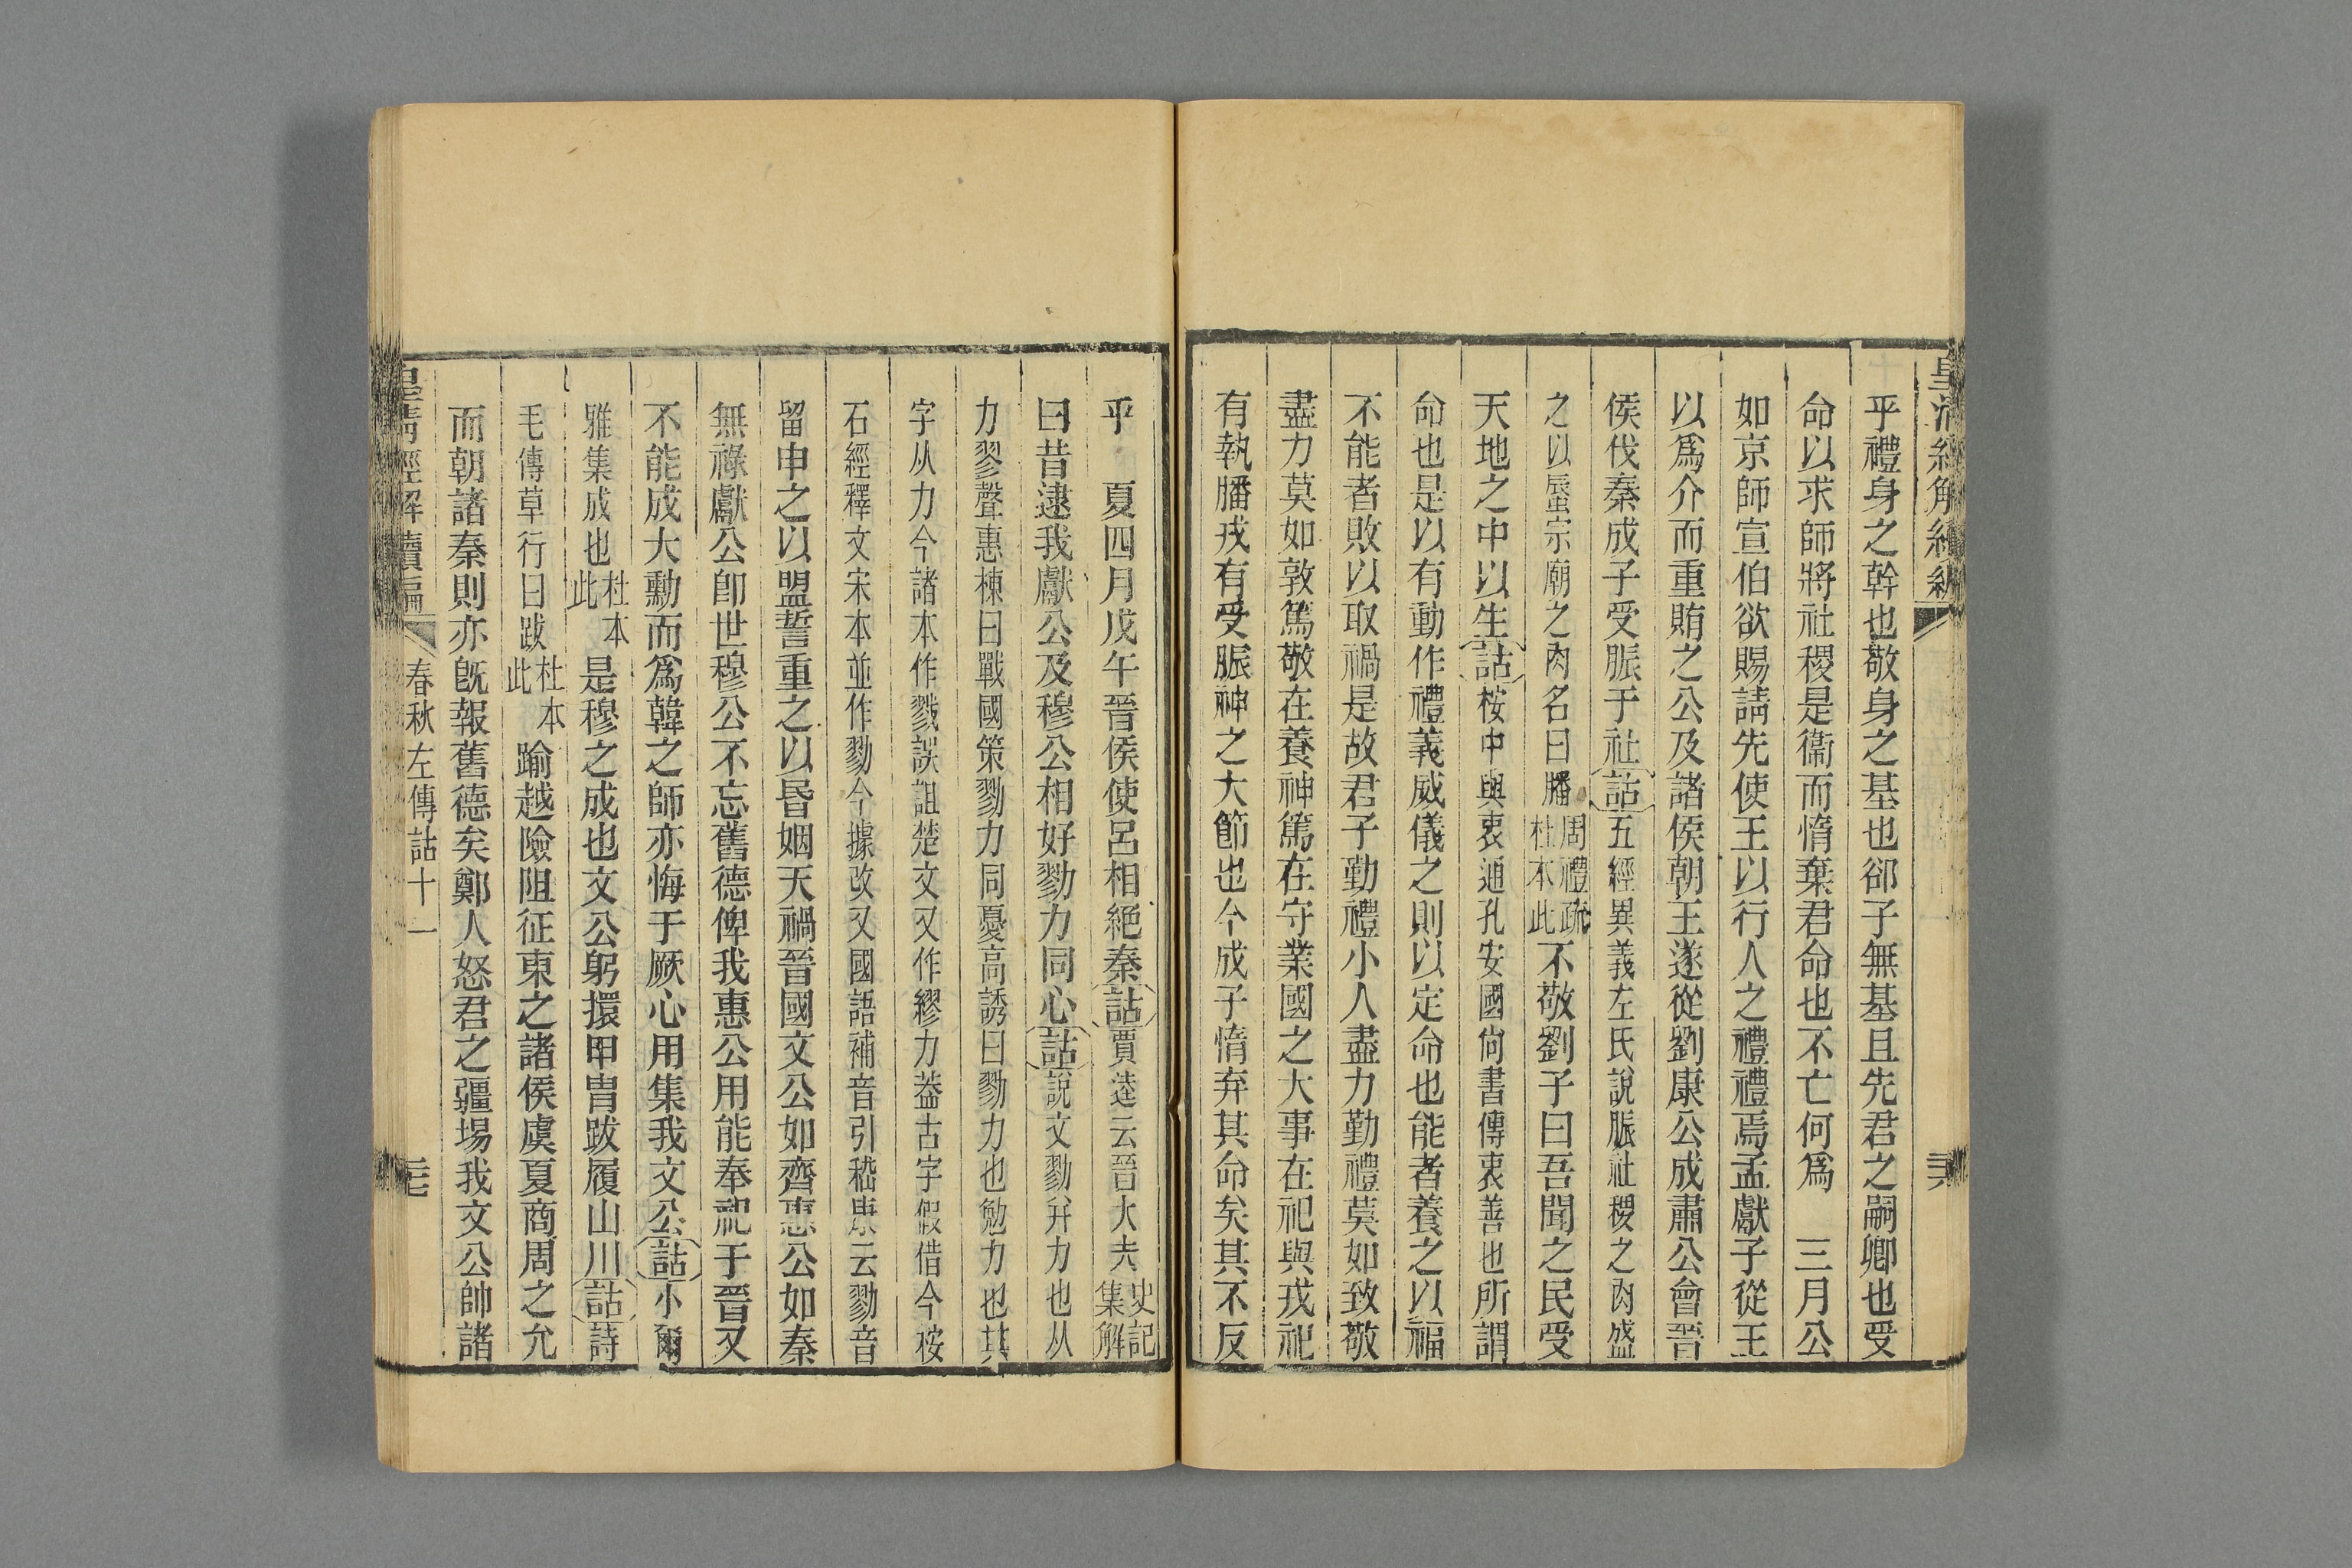 皇清經解續編
乎禮身之幹也敬身之基也郤子無基且先君之嗣卿也受
命以求師將社稷是衞而惰棄君命也不亡何爲　三月公
如京師宣伯欲賜請先使王以行人之禮禮焉孟獻子從王
以爲介而重賄之公及諸侯朝王遂從劉康公成肅公會晉
侯伐秦成子受脤于社詁五經異義左氏說脤社稷之肉盛
之以蜃宗廟之肉名曰膰周禮疏杜本此不敬劉子曰吾聞之民受
天地之中以生詁桉中與衷通孔安國尙書傳衷善也所謂
命也是以有動作禮義威儀之則以定命也能者養之以福
不能者敗以取禍是故君子勤禮小人盡力勤禮莫如致敬
盡力莫如敦篤敬在養神篤在守業國之大事在祀與戎祀
有執膰戎有受脤神之大節也今成子惰弃其命矣其不反
乎　夏四月戊午晉侯使呂相絕秦詁賈逵云晉大夫史記集解
曰昔逮我獻公及穆公相好勠力同心詁說文勠幷力也从
力翏聲惠棟曰戰國策勠力同憂高誘曰勠力也勉力也其
字从力今諸本作戮誤詛楚文又作繆力葢古字假借今桉
石經釋文宋本並作勠今據改又國語補音引嵇康云勠音
留申之以盟誓重之以昬姻天禍晉國文公如齊惠公如秦
無祿獻公卽世穆公不忘舊德俾我惠公用能奉祀于晉又
不能成大勳而爲韓之師亦悔于厥心用集我文公詁小爾
雅集成也杜本此是穆之成也文公躬擐甲冑跋履山川詁詩
毛傳草行曰跋杜本此踰越險阻征東之諸侯虞夏商周之允
而朝諸秦則亦旣報舊德矣鄭人怒君之疆埸我文公帥諸
皇清經解續編　春秋左傳詁十一